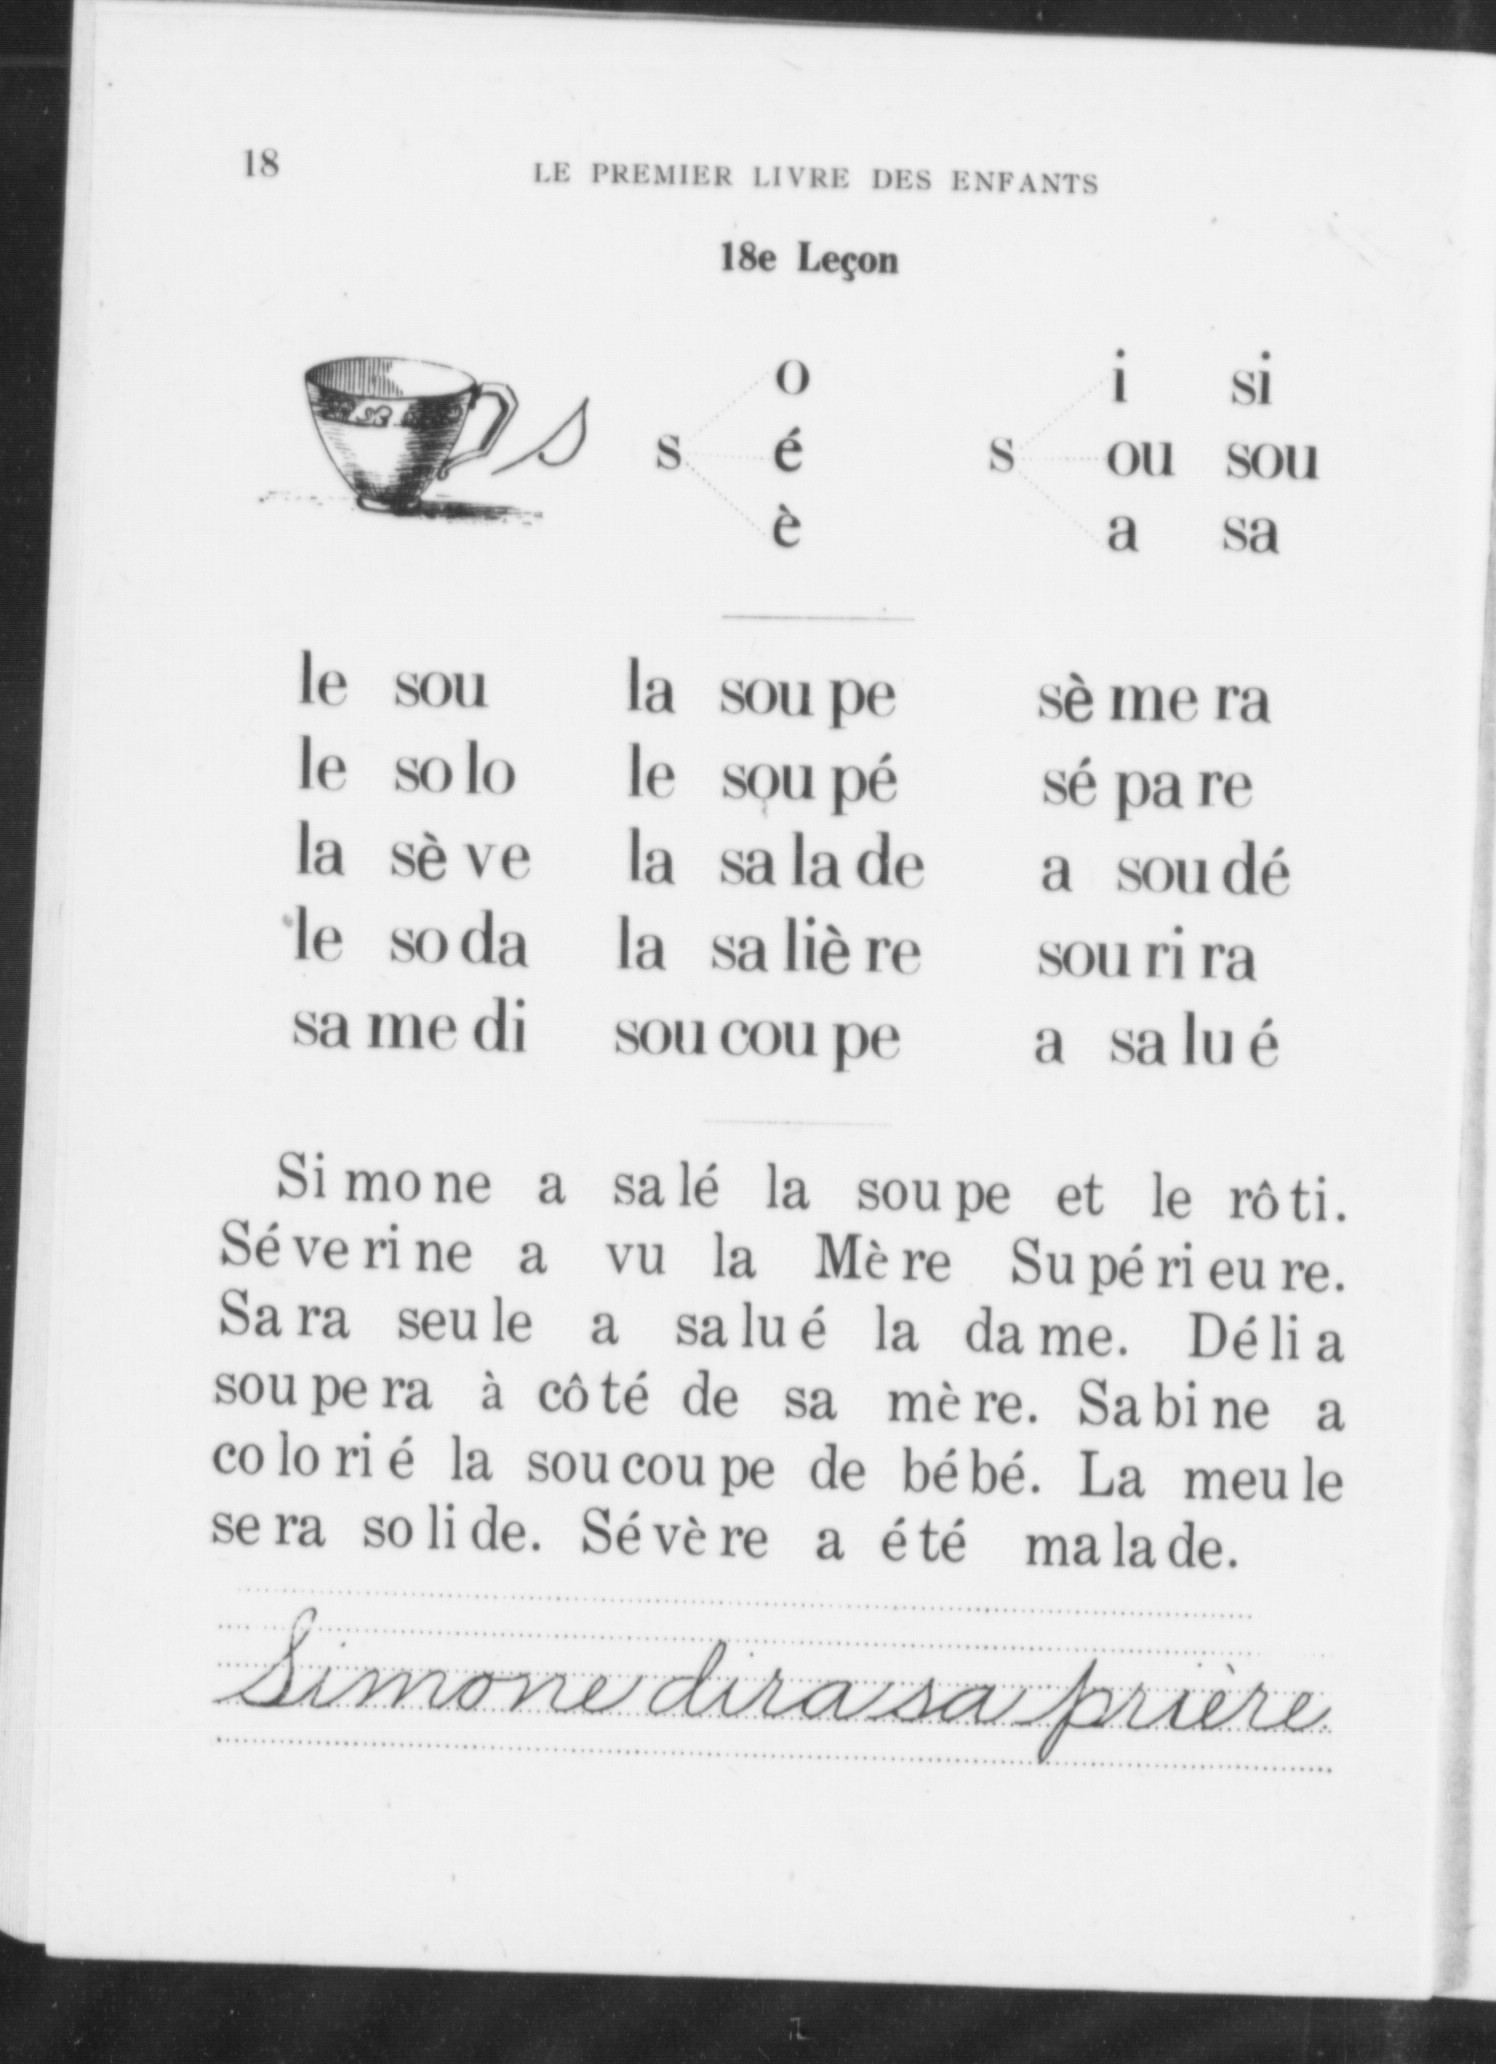 18 LE PREMIER LIVRE DES ENFANTS
18e Leçon
s
s o é è
s i ou a
si sou sa
le sou la sou pe sè me ra
le so lo le sou pé sé pa re
la sè ve la sa la de a sou dé
le so da la sa liè re sou ri ra
sa me di sou cou pe a sa lu é
Si mo ne a sa lé la sou pe et le rô ti.
Sé ve ri ne a vu la Mè re Su pé ri eu re.
Sa ra seu le a sa lu é la da me. Dé li a
sou pe ra à cô té de sa mè re. Sa bi ne a
co lo ri é la sou cou pe de bé bé. La meu le
se ra so li de. Sé vè re a é té ma la de.
Simone dira sa prière.